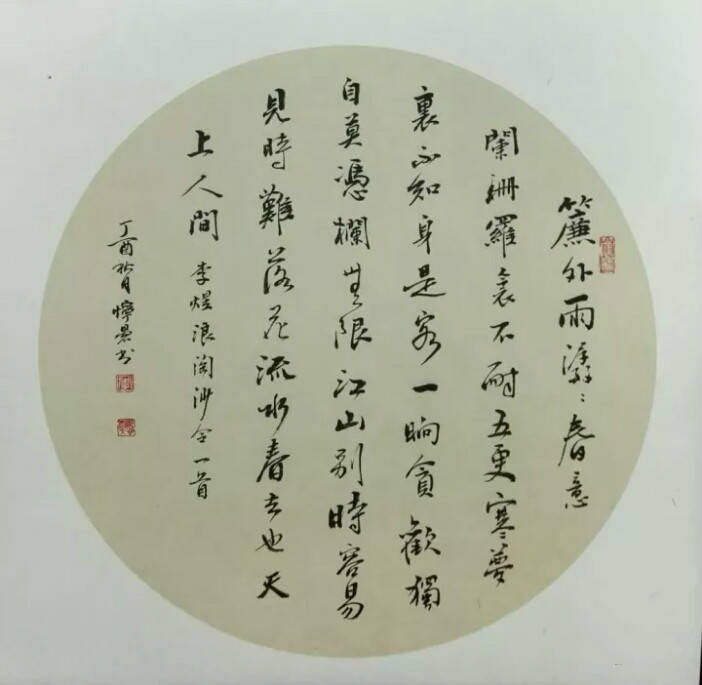 簾外雨潺〻春意
闌珊羅衾不耐五更寒夢
裏不知身是客一晌貪歡獨
自莫憑欄無限江山別時容易
見時難落花流水春去也天
上人間 李煜浪淘沙令一首
丁酉 月 書